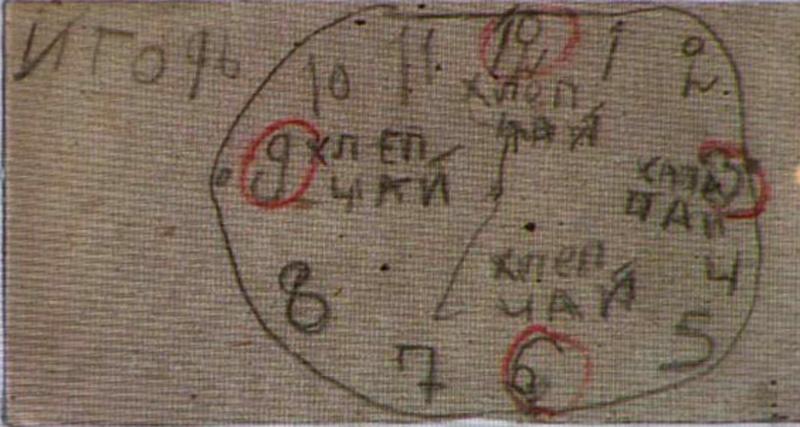 ИГОРЬ
10 11 12 1 2
ХЛЕП
ЧАЙ
9 ХЛЕП
ЧАЙ
3
ЧАЙ
ХЛЕП
ЧАЙ
8 4
7 6 5